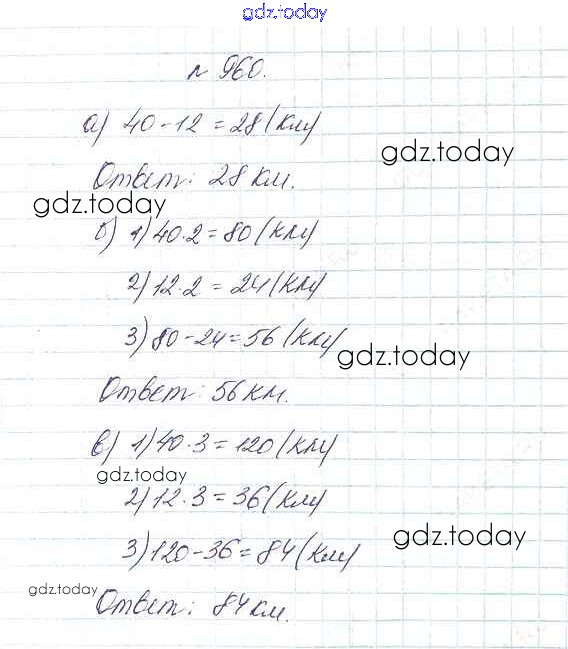 gdz.today
№ 960.
а) 40-12=28 (км)
gdz.today
Ответ: 28 км.
gdz.today
б) 1) 40·2=80 (км)
2) 12·2=24 (км)
3) 80-24=56 (км)
gdz.today
Ответ: 56 км.
в) 1) 40·3=120 (км)
gdz.today
2) 12·3=36 (км)
gdz.today
3) 120-36=84 (км)
gdz.today
Ответ: 84 км.